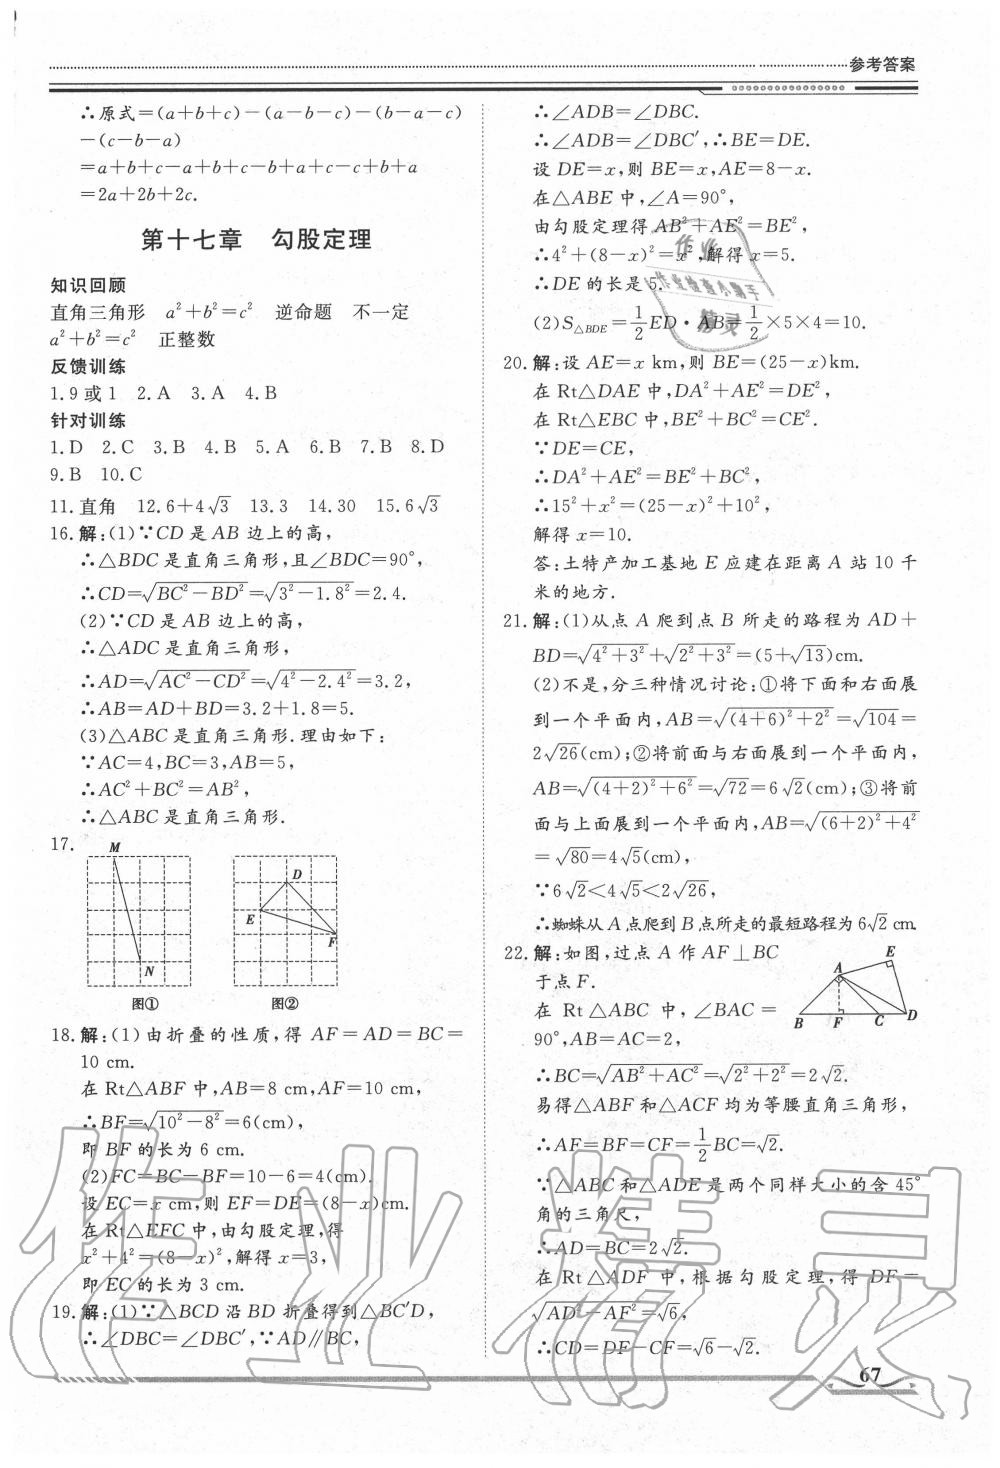 参考答案
∴原式=(a+b+c)-(a-b-c)-(b-a-c)
-(c-b-a)
=a+b+c-a+b+c-b+a+c-c+b+a
=2a+2b+2c.
第十七章 勾股定理
知识回顾
直角三角形 a²+b²=c² 逆命题 不一定
a²+b²=c² 正整数
反馈训练
1.9或1 2.A 3.A 4.B
针对训练
1.D 2.C 3.B 4.B 5.A 6.B 7.B 8.D
9.B 10.C
11.直角 12.6+4√3 13.3 14.30 15.6√3
16.解:(1)∵CD是AB边上的高,
∴△BDC是直角三角形,且∠BDC=90°,
∴CD=√(BC²-BD²)=√(3²-1.8²)=2.4.
(2)∵CD是AB边上的高,
∴△ADC是直角三角形,
∴AD=√(AC²-CD²)=√(4²-2.4²)=3.2,
∴AB=AD+BD=3.2+1.8=5.
(3)△ABC是直角三角形.理由如下:
∵AC=4,BC=3,AB=5,
∴AC²+BC²=AB²,
∴△ABC是直角三角形.
17.
M
N
图①
D
E
F
图②
18.解:(1)由折叠的性质,得AF=AD=BC=
10 cm.
在Rt△ABF中,AB=8 cm,AF=10 cm,
∴BF=√(10²-8²)=6(cm),
即BF的长为6 cm.
(2)FC=BC-BF=10-6=4(cm).
设EC=x cm,则EF=DE=(8-x)cm.
在Rt△EFC中,由勾股定理,得
x²+4²=(8-x)²,解得x=3,
即EC的长为3 cm.
19.解:(1)∵△BCD沿BD折叠得到△BC′D,
∴∠DBC=∠DBC′,∵AD∥BC,
∴∠ADB=∠DBC.
∴∠ADB=∠DBC′,∴BE=DE.
设DE=x,则BE=x,AE=8-x.
在△ABE中,∠A=90°,
由勾股定理得AB²+AE²=BE²,
∴4²+(8-x)²=x²,解得x=5.
∴DE的长是5.
(2)S△BDE=1/2ED·AB=1/2×5×4=10.
20.解:设AE=x km,则BE=(25-x)km.
在Rt△DAE中,DA²+AE²=DE²,
在Rt△EBC中,BE²+BC²=CE².
∵DE=CE,
∴DA²+AE²=BE²+BC²,
∴15²+x²=(25-x)²+10²,
解得x=10.
答:土特产加工基地E应建在距离A站10千
米的地方.
21.解:(1)从点A爬到点B所走的路程为AD+
BD=√(4²+3²)+√(2²+3²)=(5+√13)cm.
(2)不是,分三种情况讨论:①将下面和右面展
到一个平面内,AB=√((4+6)²+2²)=√104=
2√26(cm);②将前面与右面展到一个平面内,
AB=√((4+2)²+6²)=√72=6√2(cm);③将前
面与上面展到一个平面内,AB=√((6+2)²+4²)
=√80=4√5(cm),
∵6√2<4√5<2√26,
∴蜘蛛从A点爬到B点所走的最短路程为6√2 cm.
22.解:如图,过点A作AF⊥BC
于点F.
在Rt△ABC中,∠BAC=
90°,AB=AC=2,
A
E
B
F
C
D
∴BC=√(AB²+AC²)=√(2²+2²)=2√2.
易得△ABF和△ACF均为等腰直角三角形,
∴AF=BF=CF=1/2BC=√2.
∵△ABC和△ADE是两个同样大小的含45°
角的三角尺,
∴AD=BC=2√2.
在Rt△ADF中,根据勾股定理,得DF=
√(AD²-AF²)=√6,
∴CD=DF-CF=√6-√2.
67
作业精灵
作业
作业检查小助手
精灵